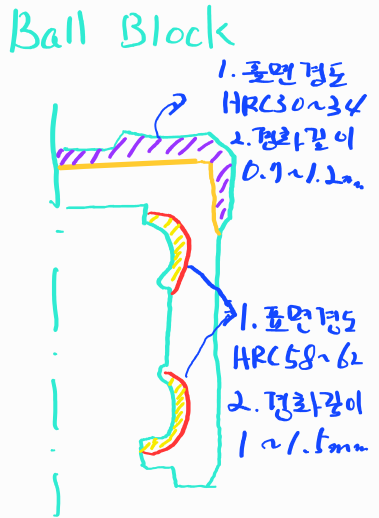 Ball Block
1. 표면경도
HRC30~34
2. 경화깊이
0.7~1.2mm
1. 표면경도
HRC58~62
2. 경화깊이
1~1.5mm